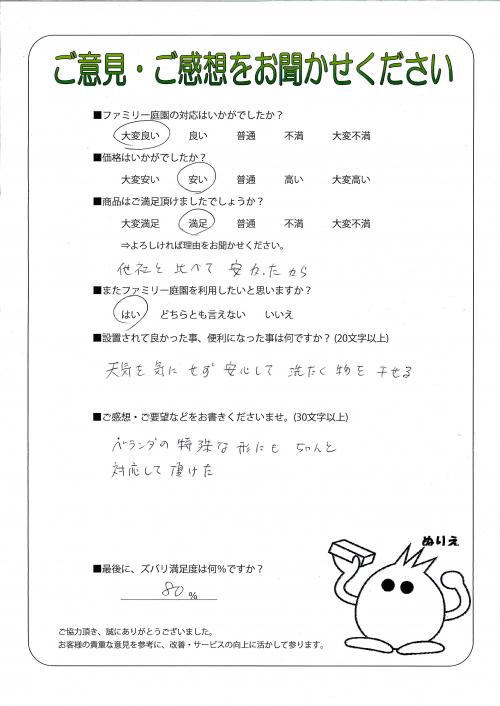 ご意見・ご感想をお聞かせください
■ファミリー庭園の対応はいかがでしたか？
大変良い 良い 普通 不満 大変不満
■価格はいかがでしたか？
大変安い 安い 普通 高い 大変高い
■商品はご満足頂けましたでしょうか？
大変満足 満足 普通 不満 大変不満
⇒よろしければ理由をお聞かせください。
他社と比べて安かったから
■またファミリー庭園を利用したいと思いますか？
はい どちらとも言えない いいえ
■設置されて良かった事、便利になった事は何ですか？(20文字以上)
天気を気にせず安心して洗たく物を干せる
■ご感想・ご要望などをお書きくださいませ。(30文字以上)
ベランダの特殊な形にもちゃんと
対応して頂けた
ぬりえ
■最後に、ズバリ満足度は何％ですか？
80％
ご協力頂き、誠にありがとうございました。
お客様の貴重な意見を参考に、改善・サービスの向上に活かして参ります。